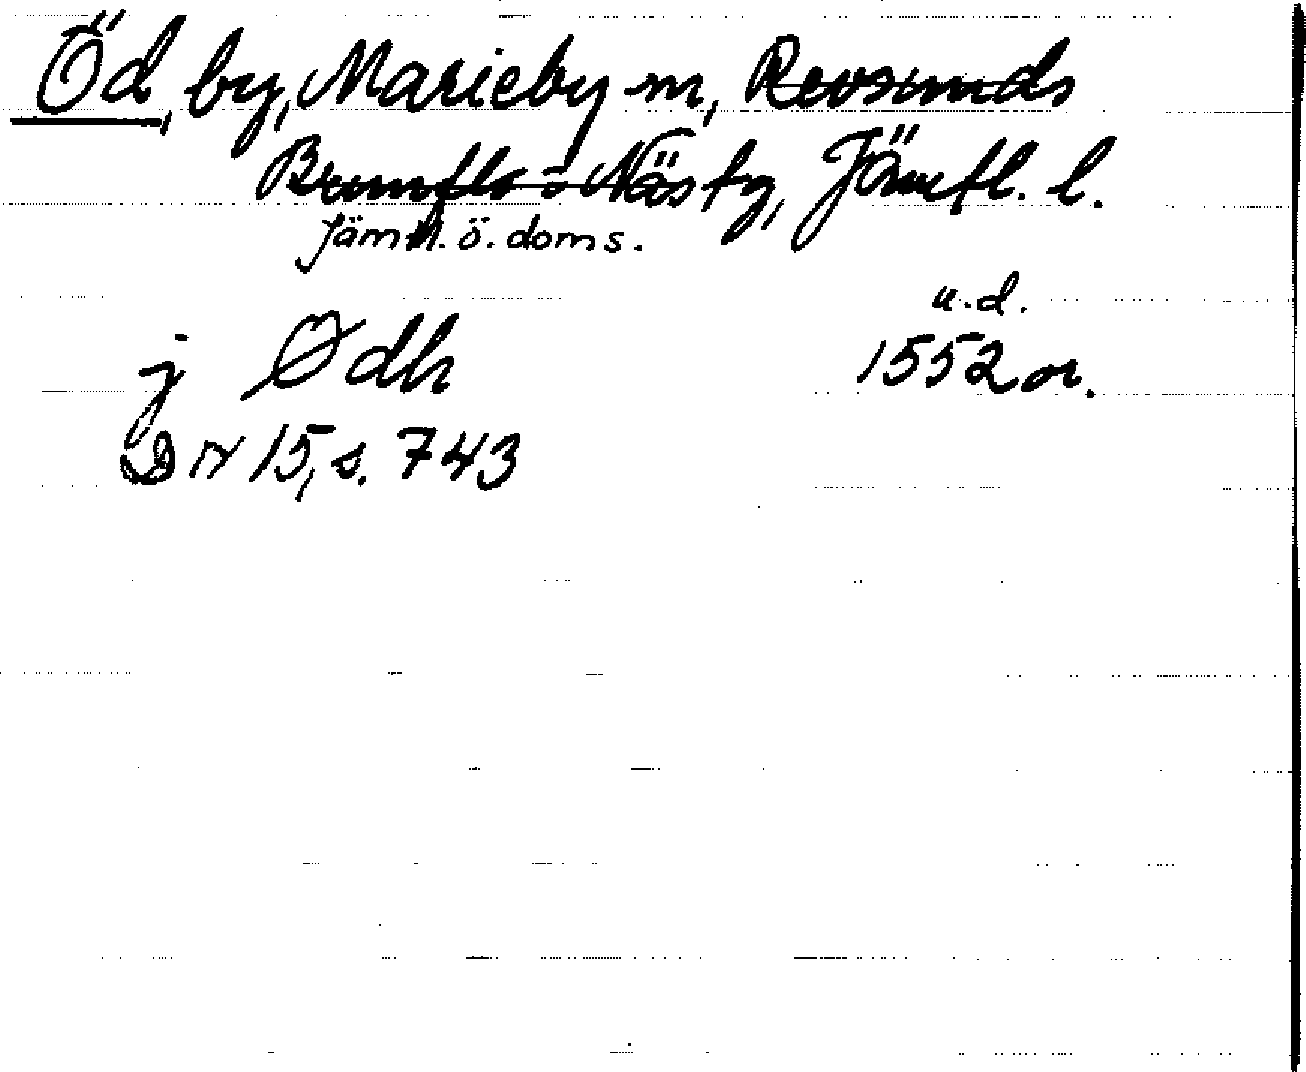 Öd, by, Marieby sn, Revsunds
Brunflo o Näs tg, Jämtl. l.
Jämtl. ö. doms.
u.d.
j Ødh 1552 or.
DN 15, s. 743